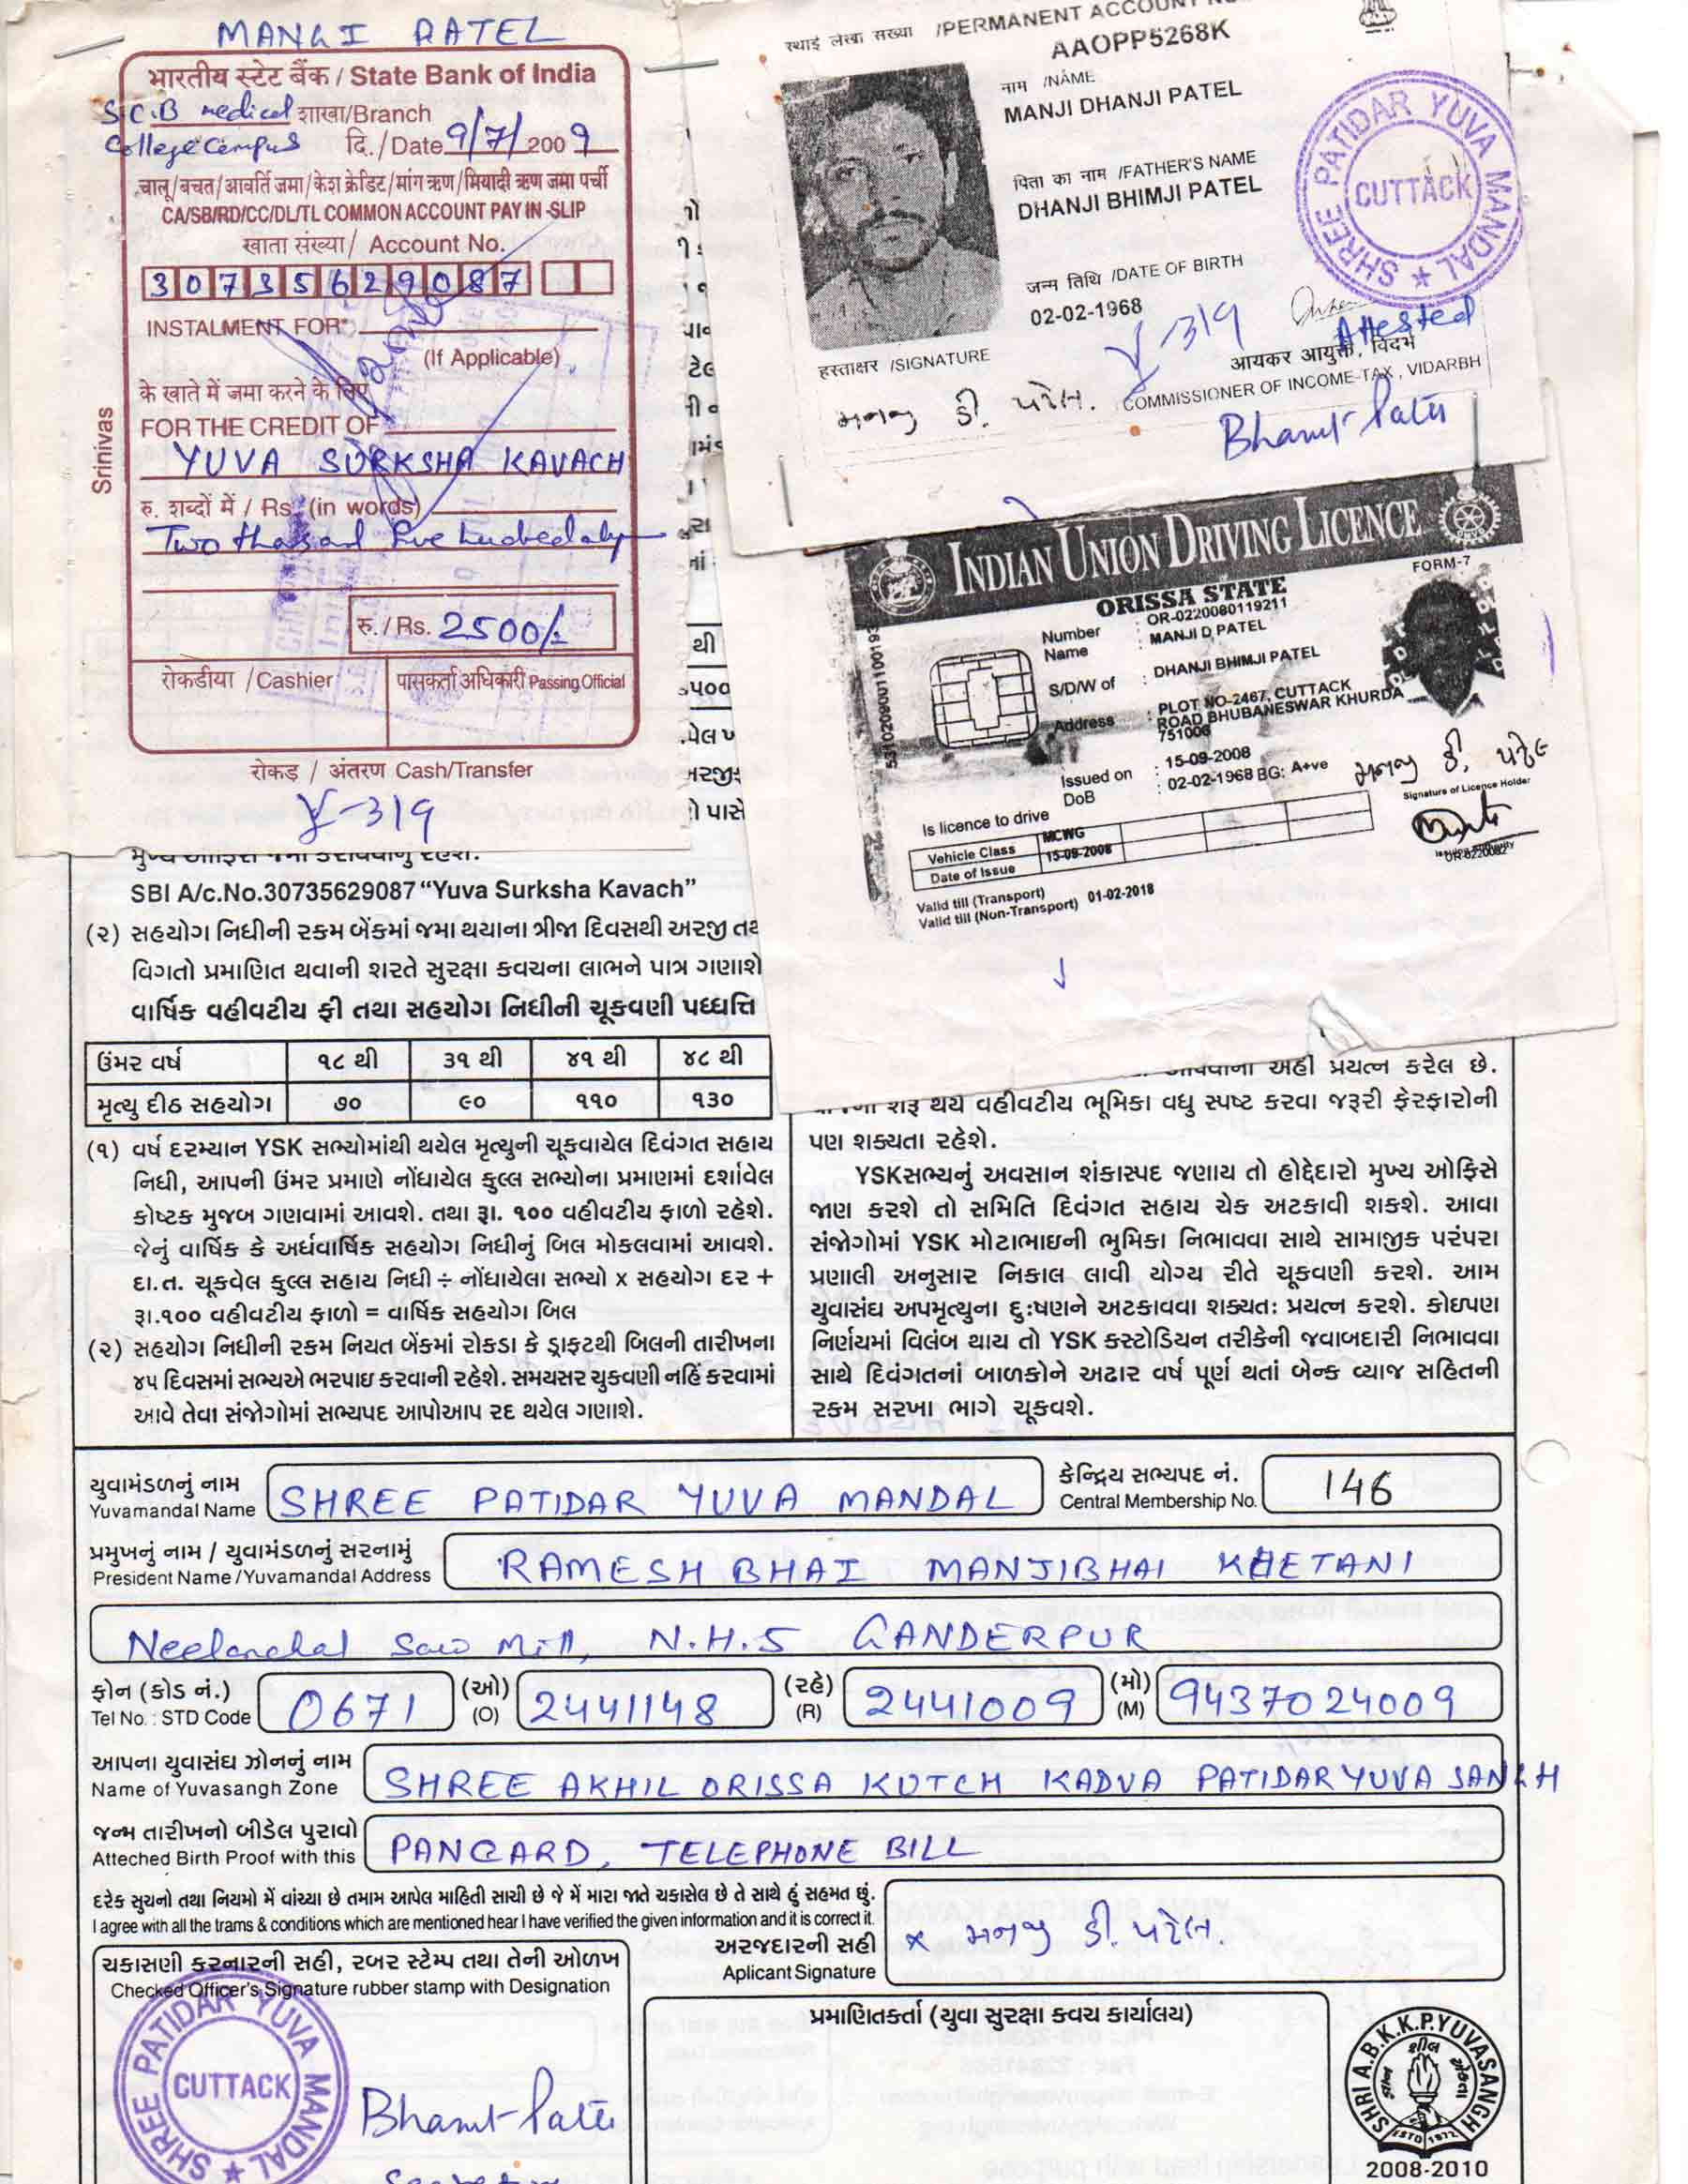 MANGI PATEL
भारतीय स्टेट बैंक / State Bank of India
S.C.B medical शाखा/Branch
College Campus दि./Date 9/7/2009
चालू/बचत/आवर्ति जमा/केश क्रेडिट/मांग ऋण/मियादी ऋण जमा पर्ची
CA/SB/RD/CC/DL/TL COMMON ACCOUNT PAY IN-SLIP
खाता संख्या/ Account No.
30735629087
INSTALMENT FOR*
(If Applicable)
के खाते में जमा करने के लिए
FOR THE CREDIT OF
YUVA SURKSHA KAVACH
रु. शब्दों में / Rs. (in words)
Two thousand five hundred only
रु./Rs. 2500/-
रोकडीया /Cashier
पासकर्ता अधिकारी Passing Official
रोकड़ / अंतरण Cash/Transfer
Y-319
Srinivas
स्थाई लेखा संख्या /PERMANENT ACCOUNT
AAOPP5268K
नाम /NAME
MANJI DHANJI PATEL
पिता का नाम /FATHER'S NAME
DHANJI BHIMJI PATEL
जन्म तिथि /DATE OF BIRTH
02-02-1968
Y-319
हस्ताक्षर /SIGNATURE
મનજી ડી. પટેલ.
Attested
आयकर आयुक्त, विदर्भ
COMMISSIONER OF INCOME-TAX, VIDARBH
SHREE PATIDAR YUVA MANDAL
CUTTACK
INDIAN UNION DRIVING LICENCE
FORM-7
ORISSA STATE
Number : OR-0220080119211
Name : MANJI D PATEL
S/D/W of : DHANJI BHIMJI PATEL
Address : PLOT NO-2467, CUTTACK
ROAD BHUBANESWAR KHURDA
751006
Issued on : 15-09-2008
DoB : 02-02-1968 BG: A+ve
મનજી ડી. પટેલ
Signature of Licence Holder
Is licence to drive
Vehicle Class MCWG
Date of Issue 15-09-2008
Valid till (Transport)
Valid till (Non-Transport) 01-02-2018
SBI A/c.No.30735629087 “Yuva Surksha Kavach”
(૨) સહયોગ નિધીની રકમ બેંકમાં જમા થયાના ત્રીજા દિવસથી અરજી
વિગતો પ્રમાણિત થવાની શરતે સુરક્ષા કવચના લાભને પાત્ર ગણાશે
વાર્ષિક વહીવટીય ફી તથા સહયોગ નિધીની ચૂકવણી પધ્ધત્તિ
ઉંમર વર્ષ ૧૮ થી ૩૧ થી ૪૧ થી ૪૮ થી
મૃત્યુ દીઠ સહયોગ ૭૦ ૯૦ ૧૧૦ ૧૩૦
(૧) વર્ષ દરમ્યાન YSK સભ્યોમાંથી થયેલ મૃત્યુની ચૂકવાયેલ દિવંગત સહાય
નિધી, આપની ઉંમર પ્રમાણે નોંધાયેલ કુલ્લ સભ્યોના પ્રમાણમાં દર્શાવેલ
કોષ્ટક મુજબ ગણવામાં આવશે. તથા રૂા. ૧૦૦ વહીવટીય ફાળો રહેશે.
જેનું વાર્ષિક કે અર્ધવાર્ષિક સહયોગ નિધીનું બિલ મોકલવામાં આવશે.
દા.ત. ચૂકવેલ કુલ્લ સહાય નિધી ÷ નોંધાયેલા સભ્યો x સહયોગ દર +
રૂા.૧૦૦ વહીવટીય ફાળો = વાર્ષિક સહયોગ બિલ
(૨) સહયોગ નિધીની રકમ નિયત બેંકમાં રોકડા કે ડ્રાફટથી બિલની તારીખના
૪૫ દિવસમાં સભ્યએ ભરપાઇ કરવાની રહેશે. સમયસર ચુકવણી નહિં કરવામાં
આવે તેવા સંજોગોમાં સભ્યપદ આપોઆપ રદ થયેલ ગણાશે.
અહીં પ્રયત્ન કરેલ છે.
શરૂ થયે વહીવટીય ભૂમિકા વધુ સ્પષ્ટ કરવા જરૂરી ફેરફારોની
પણ શક્યતા રહેશે.
YSKસભ્યનું અવસાન શંકાસ્પદ જણાય તો હોદ્દેદારો મુખ્ય ઓફિસે
જાણ કરશે તો સમિતિ દિવંગત સહાય ચેક અટકાવી શકશે. આવા
સંજોગોમાં YSK મોટાભાઇની ભુમિકા નિભાવવા સાથે સામાજીક પરંપરા
પ્રણાલી અનુસાર નિકાલ લાવી યોગ્ય રીતે ચૂકવણી કરશે. આમ
યુવાસંઘ અપમૃત્યુના દુઃષણને અટકાવવા શક્યતઃ પ્રયત્ન કરશે. કોઇપણ
નિર્ણયમાં વિલંબ થાય તો YSK કસ્ટોડિયન તરીકેની જવાબદારી નિભાવવા
સાથે દિવંગતનાં બાળકોને અઢાર વર્ષ પૂર્ણ થતાં બેન્ક વ્યાજ સહિતની
રકમ સરખા ભાગે ચૂકવશે.
યુવામંડળનું નામ
Yuvamandal Name SHREE PATIDAR YUVA MANDAL
કેન્દ્રિય સભ્યપદ નં.
Central Membership No. 146
પ્રમુખનું નામ / યુવામંડળનું સરનામું
President Name/Yuvamandal Address RAMESH BHAI MANJIBHAI KHETANI
Neelanchal Saw Mill, N.H.5 GANDERPUR
ફોન (કોડ નં.) (ઓ) (રહે) (મો)
Tel No.: STD Code 0671 (O) 2441148 (R) 2441009 (M) 9437024009
આપના યુવાસંઘ ઝોનનું નામ
Name of Yuvasangh Zone SHREE AKHIL ORISSA KUTCH KADVA PATIDAR YUVA SANGH
જન્મ તારીખનો બીડેલ પુરાવો
Atteched Birth Proof with this PANCARD, TELEPHONE BILL
દરેક સુચનો તથા નિયમો મેં વાંચ્યા છે તમામ આપેલ માહિતી સાચી છે જે મેં મારા જાતે ચકાસેલ છે તે સાથે હું સહમત છું.
I agree with all the trams & conditions which are mentioned hear I have verified the given information and it is correct it.
અરજદારની સહી
Aplicant Signature x મનજી ડી. પટેલ.
ચકાસણી કરનારની સહી, રબર સ્ટેમ્પ તથા તેની ઓળખ
Checked Officer's Signature rubber stamp with Designation
SHREE PATIDAR YUVA MANDAL
CUTTACK
પ્રમાણિતકર્તા (યુવા સુરક્ષા કવચ કાર્યાલય)
SHRI A.B.K.K.P.YUVASANGH
ESTD 1972
2008-2010